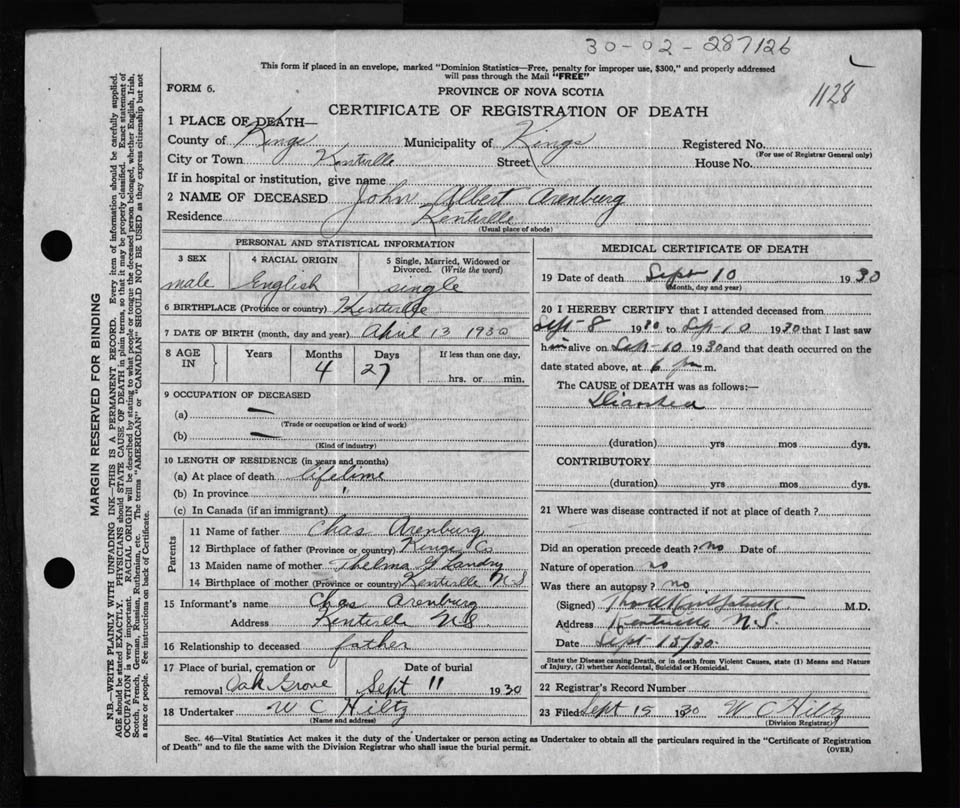 30-02-287126
This form if placed in an envelope, marked "Dominion Statistics—Free, penalty for improper use, $300," and properly addressed
will pass through the Mail "FREE"
1128
FORM 6.
PROVINCE OF NOVA SCOTIA
CERTIFICATE OF REGISTRATION OF DEATH
1 PLACE OF DEATH—
County of Kings Municipality of Kings Registered No.
(For use of Registrar General only)
City or Town Kentville Street House No.
If in hospital or institution, give name
2 NAME OF DECEASED John Albert Arenburg
Residence Kentville
(Usual place of abode)
PERSONAL AND STATISTICAL INFORMATION
3 SEX male
4 RACIAL ORIGIN English
5 Single, Married, Widowed or
Divorced. (Write the word)
single
6 BIRTHPLACE (Province or country) Kentville
7 DATE OF BIRTH (month, day and year) April 13 1930
8 AGE IN Years Months Days If less than one day,
4 27 hrs. or min.
9 OCCUPATION OF DECEASED
(a) —
(Trade or occupation or kind of work)
(b) —
(Kind of industry)
10 LENGTH OF RESIDENCE (in years and months)
(a) At place of death lifetime
(b) In province "
(c) In Canada (if an immigrant)
Parents
11 Name of father Chas Arenburg
12 Birthplace of father (Province or country) Kings Co
13 Maiden name of mother Thelma Landry
14 Birthplace of mother (Province or country) Kentville N.S
15 Informant's name Chas Arenburg
Address Kentville N.S
16 Relationship to deceased father
17 Place of burial, cremation or Date of burial
removal Oak Grove Sept 11 1930
18 Undertaker W C Hiltz
(Name and address)
MEDICAL CERTIFICATE OF DEATH
19 Date of death Sept 10 1930
(Month, day and year)
20 I HEREBY CERTIFY that I attended deceased from
Sept-8 1930 to Sep-10 1930 that I last saw
him alive on Sep-10 1930 and that death occurred on the
date stated above, at 6 pm.
The CAUSE of DEATH was as follows:—
Diarrhea
(duration) yrs mos dys.
CONTRIBUTORY
(duration) yrs mos dys.
21 Where was disease contracted if not at place of death?
Did an operation precede death? no Date of
Nature of operation no
Was there an autopsy? no
(Signed) M.D.
Address Kentville N.S.
Date Sept 15/30
State the Disease causing Death, or in death from Violent Causes, state (1) Means and Nature
of Injury, (2) whether Accidental, Suicidal or Homicidal.
22 Registrar's Record Number
23 Filed Sept 15 1930 W C Hiltz
(Division Registrar)
Sec. 46—Vital Statistics Act makes it the duty of the Undertaker or person acting as Undertaker to obtain all the particulars required in the "Certificate of Registration
of Death" and to file the same with the Division Registrar who shall issue the burial permit.
(OVER)
MARGIN RESERVED FOR BINDING
N.B.—WRITE PLAINLY WITH UNFADING INK—THIS IS A PERMANENT RECORD. Every item of information should be carefully supplied.
AGE should be stated EXACTLY. PHYSICIANS should STATE CAUSE OF DEATH in plain terms, so that it may be properly classified. Exact statement of
OCCUPATION is very important. RACIAL ORIGIN will be described by stating to what people or tongue the deceased person belonged, whether English, Irish,
Scotch, French, German, Russian, Ruthenian, etc. The terms "AMERICAN" or "CANADIAN" SHOULD NOT BE USED as they express citizenship but not
a race or people. Fee instructions on back of Certificate.